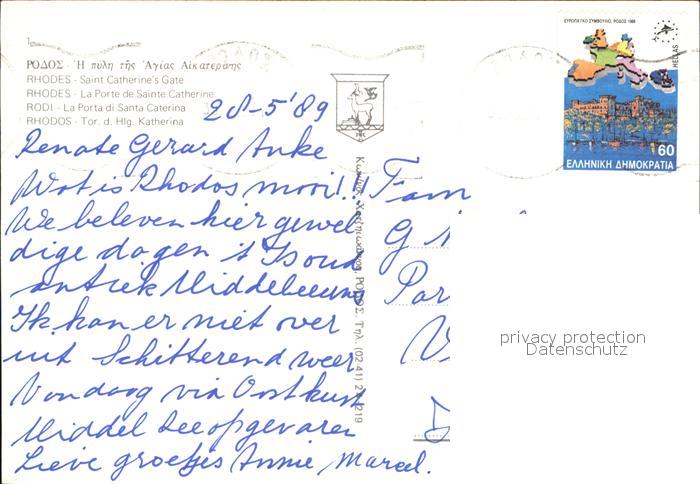 ΕΥΡΩΠΑΪΚΟ ΣΥΜΒΟΥΛΙΟ, ΡΟΔΟΣ 1988
HELLAS
60
ΕΛΛΗΝΙΚΗ ΔΗΜΟΚΡΑΤΙΑ
ΡΟΔΟΣ - Ἡ πύλη τῆς Ἁγίας Αἰκατερίνης
RHODES - Saint Catherine's Gate
RHODES - La Porte de Sainte Catherine
RODI - La Porta di Santa Caterina
RHODOS - Tor. d. Hlg. Katherina
28-5'89
Renate Gerard Anke
Wat is Rhodos mooi!!!
We beleven hier gewel
dige dagen 't Is oud
antiek Middeleeuws
Ik kan er niet over
uit Schitterend weer
Vandaag via Oostkust
Middel Zee opgevaren
Lieve groetjes Annie, Marcel.
ΡΟΔΟΣ. Τηλ. (02-41)
Fam
G
Par
V
privacy protection
Datenschutz